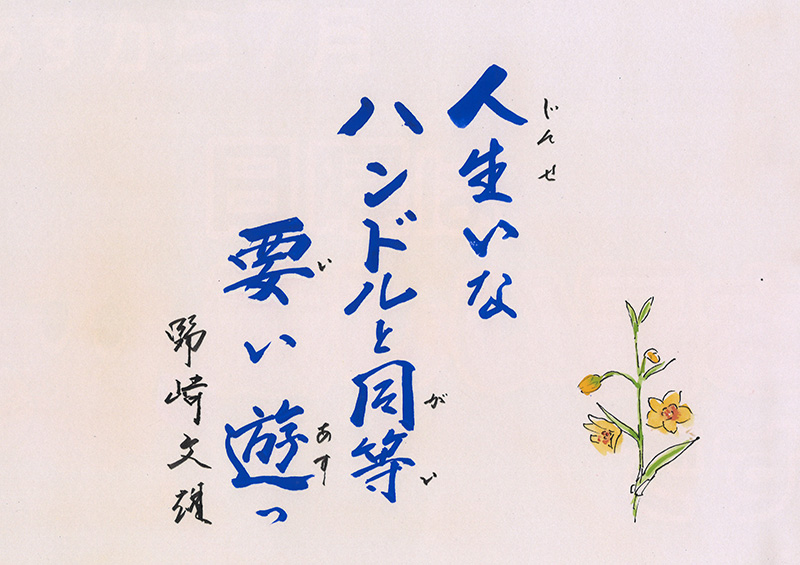 人生いな
じんせ
ハンドルと同等
がい
要い遊っ
い
あす
野崎文雄